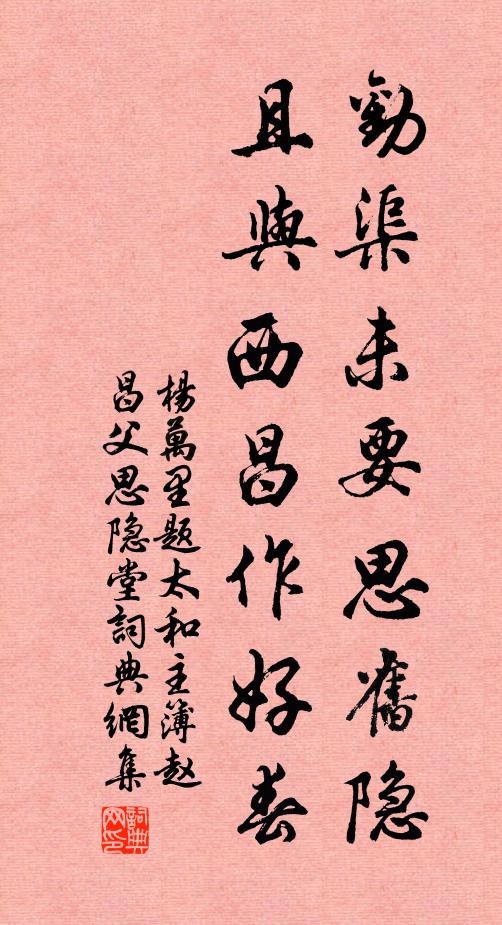 勸渠未要思舊隐
且與西昌作好春
楊萬里題太和主簿赵
昌父思隐堂詞典網集
詞典网印